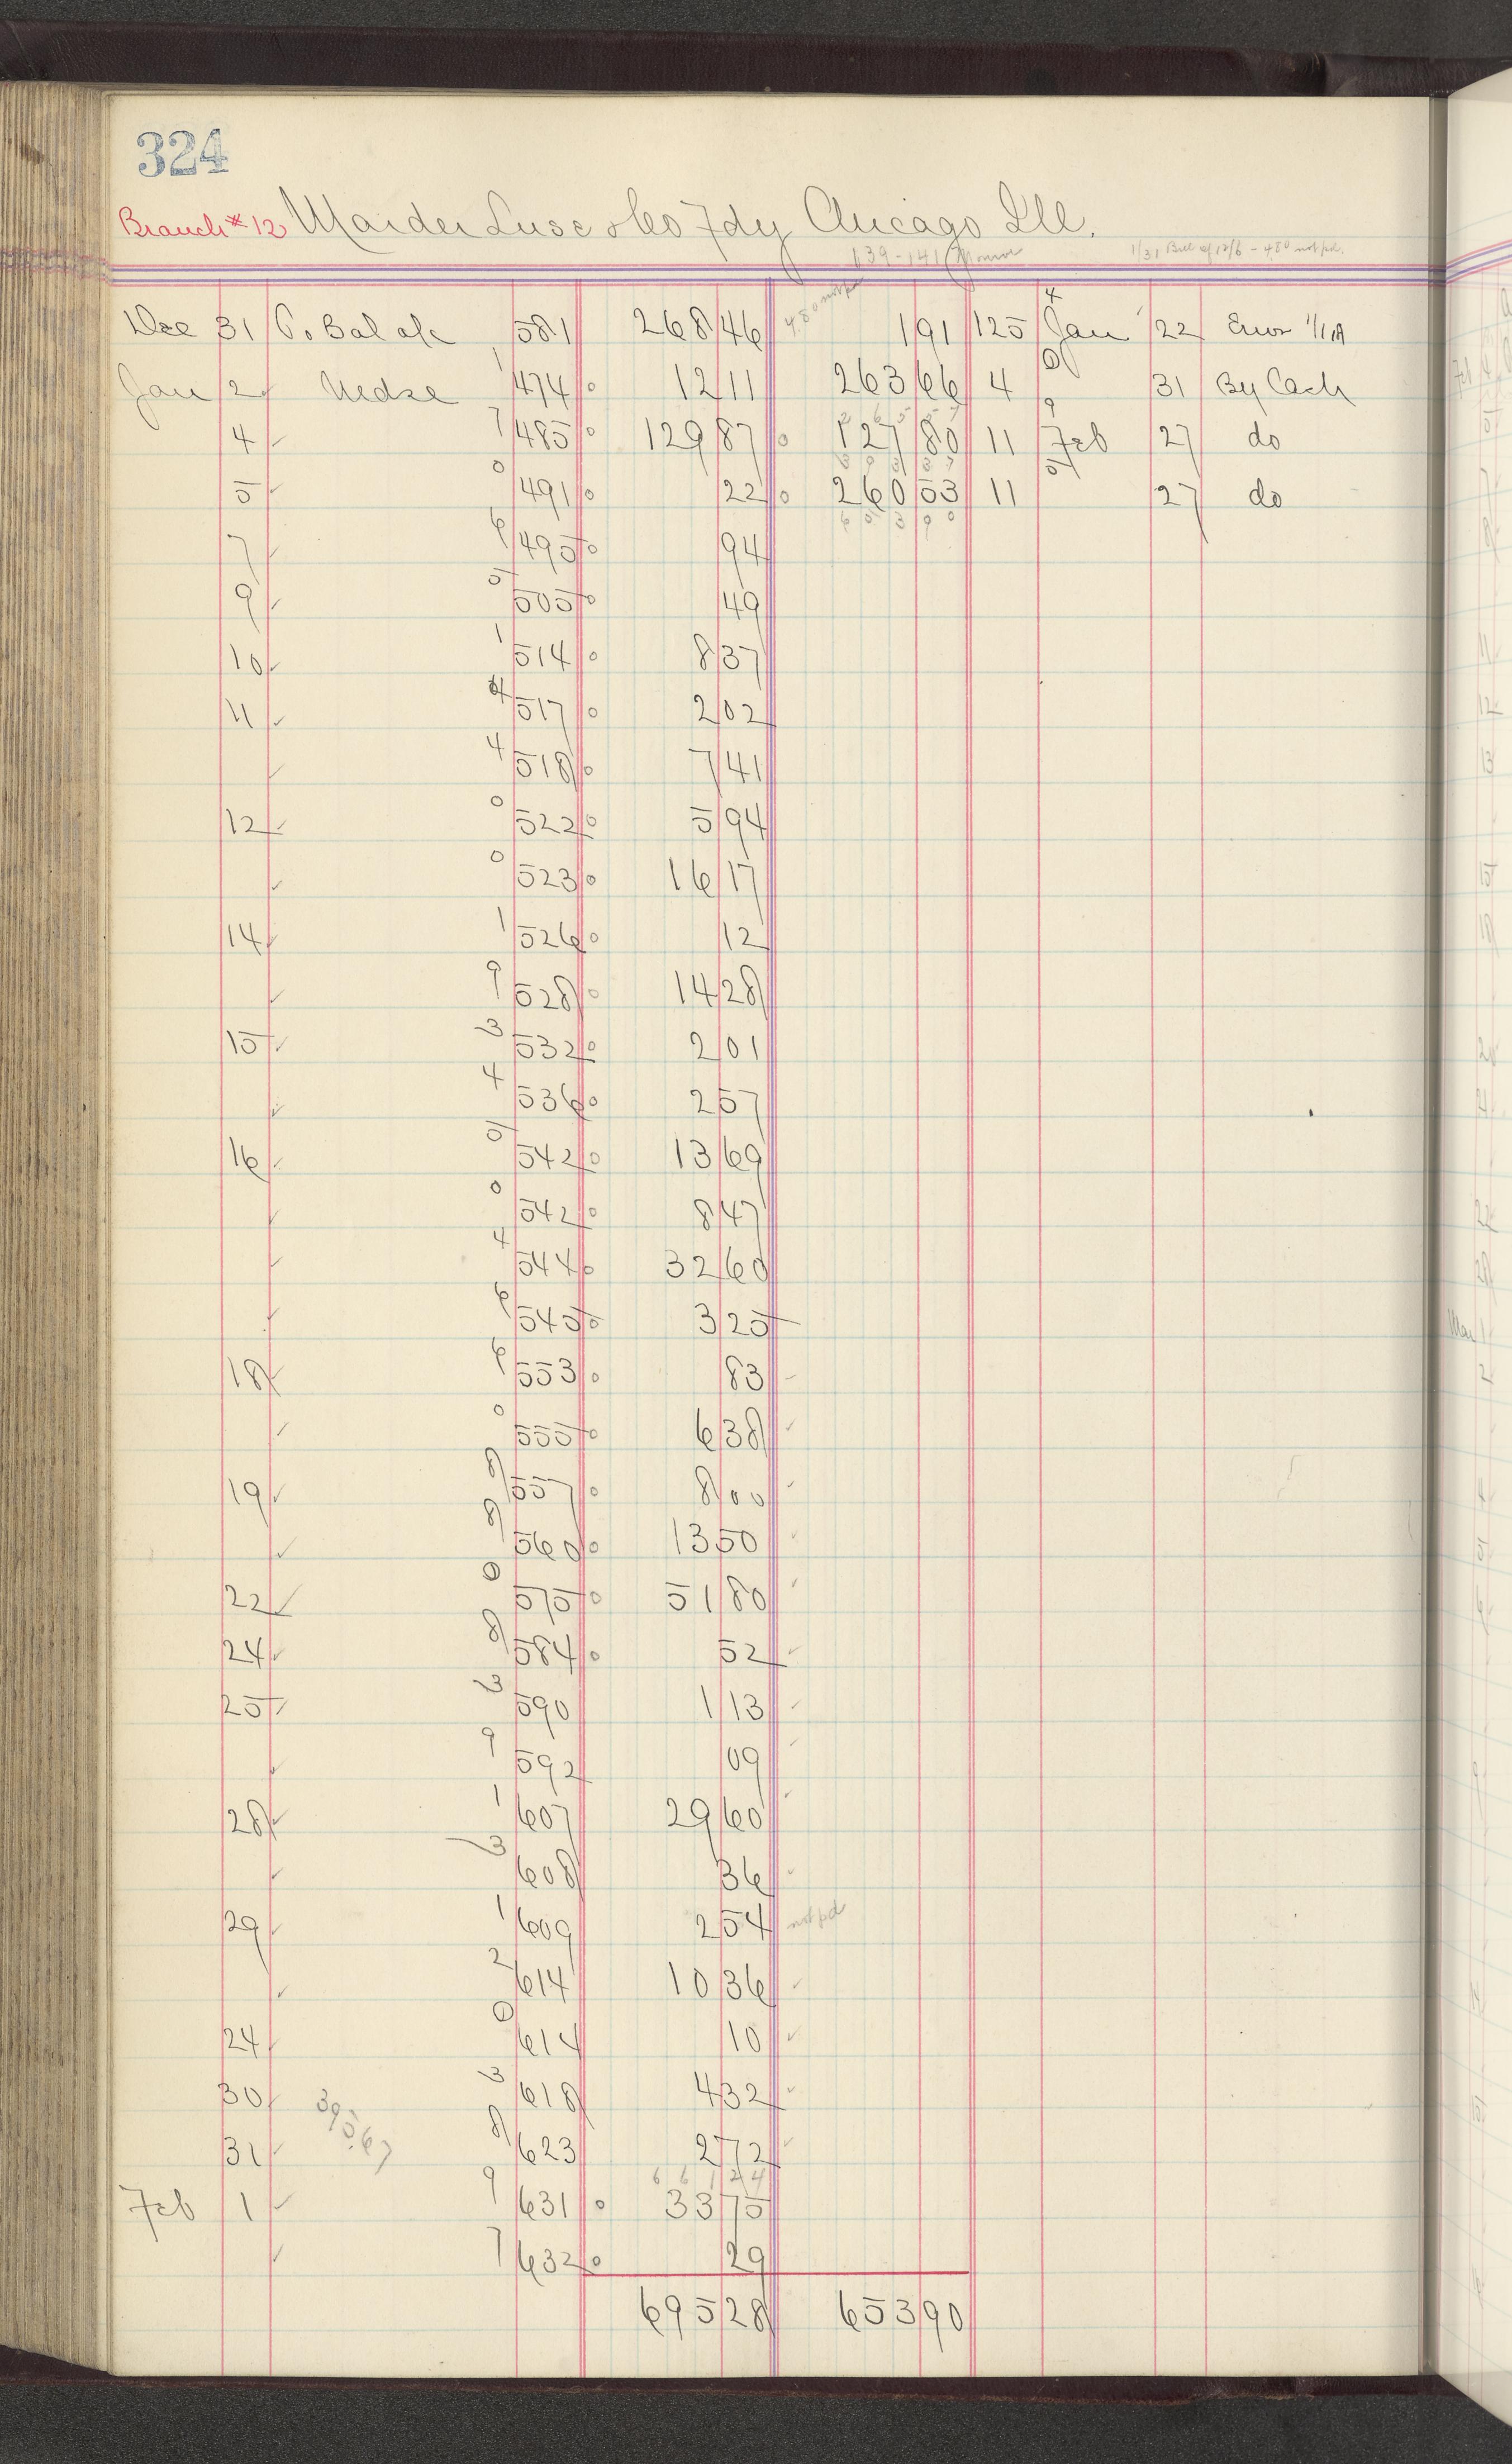 324
Branch #12 Marder Luse & Co Fdy Chicago Ill.
139-141 Monroe 1/31 Bill of 12/6 - 4.80 not pd.
Dec 31 To Bal a/c 581 268 46 4.80 not pd 1 91 125 4 Jan 22 Error 1/1A
Jan 2 Mdse 1 474 0 12 11 263 66 4 0 31 By Cash
4 7 485 0 129 87 0 2 6 5 5 7 127 80 11 9 Feb 27 do
5 0 491 0 22 0 3 9 3 3 7 260 53 11 5 27 do
7 6 495 0 94 6 5 3 9 0
9 5 505 0 49
10 1 514 0 8 37
11 4 517 0 2 02
4 518 0 7 41
12 0 522 0 5 94
0 523 0 16 17
14 1 526 0 12
9 528 0 14 28
15 3 532 0 2 01
4 536 0 2 57
16 5 542 0 13 69
0 542 0 8 47
4 544 0 32 60
6 545 0 3 25
18 6 553 0 83
0 555 0 6 38
19 8 557 0 8 00
8 560 0 13 50
22 0 575 0 51 80
24 8 584 0 52
25 3 590 1 13
9 592 09
28 1 607 29 60
3 608 36
29 1 609 2 54 not pd
2 614 10 36
24 0 614 10
30 3 618 4 32
31 395.67 8 623 2 72
6 6 1 2 4
Feb 1 9 631 0 33 75
7 632 0 29
695 28 653 90